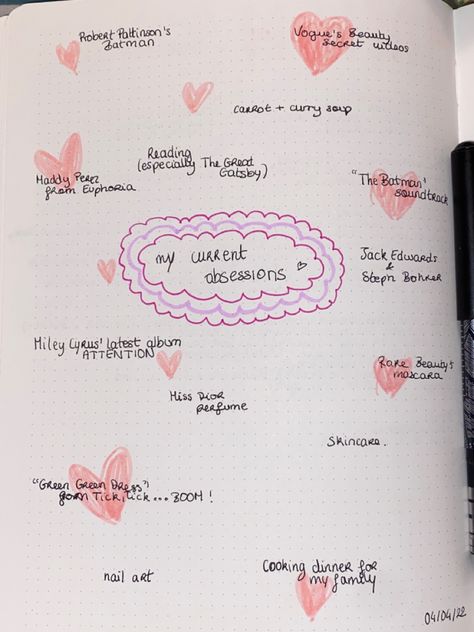 Robert Pattinson's
Batman
Vogue's Beauty
secret videos
carrot + curry soup
Reading
(especially The Great
Gatsby)
Maddy Perez
from Euphoria
"The Batman'
soundtrack
my current
obsessions
Jack Edwards
&
Steph Bohrer
Miley Cyrus' latest album
ATTENTION
Rare Beauty's
mascara
Miss Dior
perfume
skincare.
"Green Green Dress"
from Tick, tick... BOOM!
nail art
Cooking dinner for
my family
04/04/22